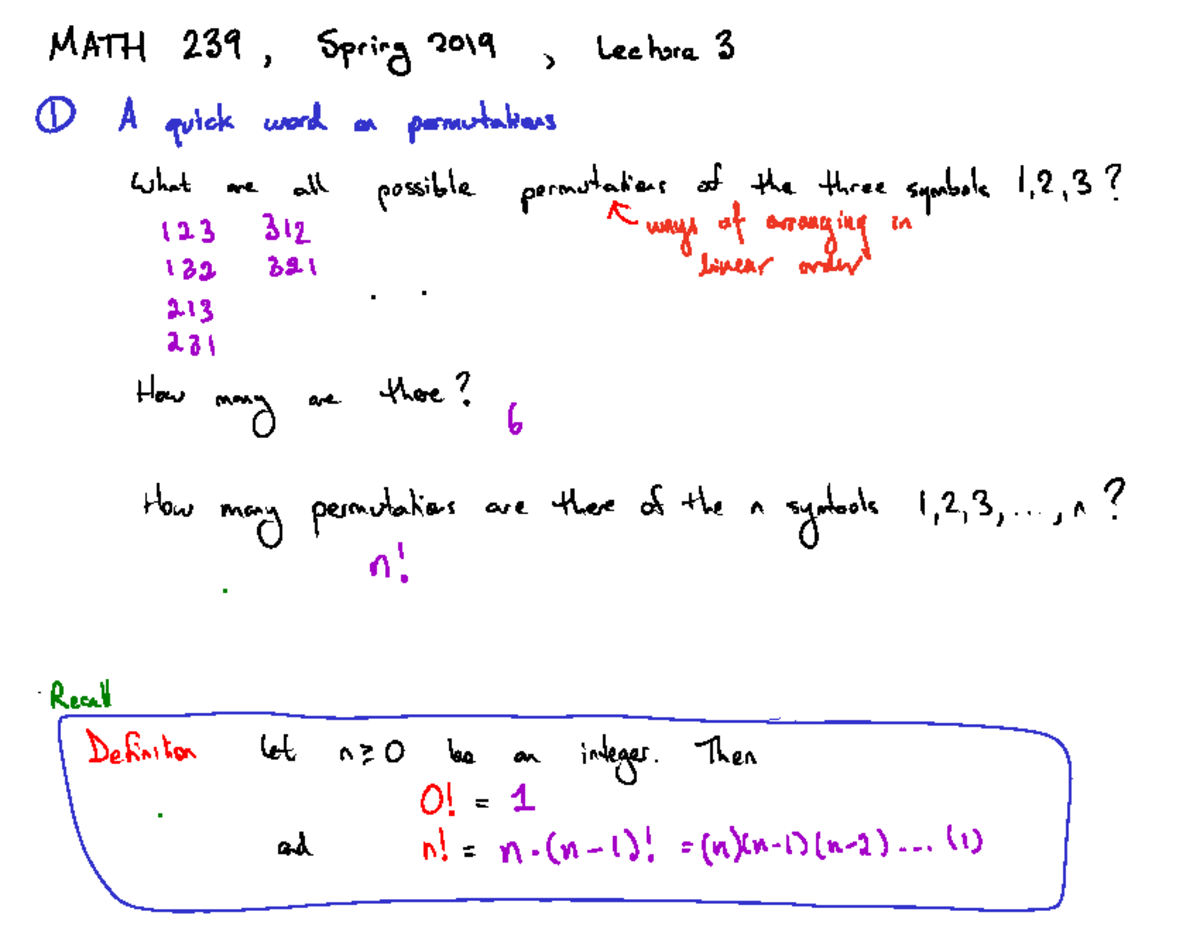 MATH 239, Spring 2019, Lecture 3
① A quick word on permutations
What are all possible permutations of the three symbols 1,2,3?
↖ ways of arranging in
linear order
123 312
132 321
213
231
How many are there?
6
How many permutations are there of the n symbols 1,2,3,...,n?
n!
Recall
Definition Let n≥0 be an integer. Then
0! = 1
and n! = n·(n-1)! = (n)(n-1)(n-2)....(1)